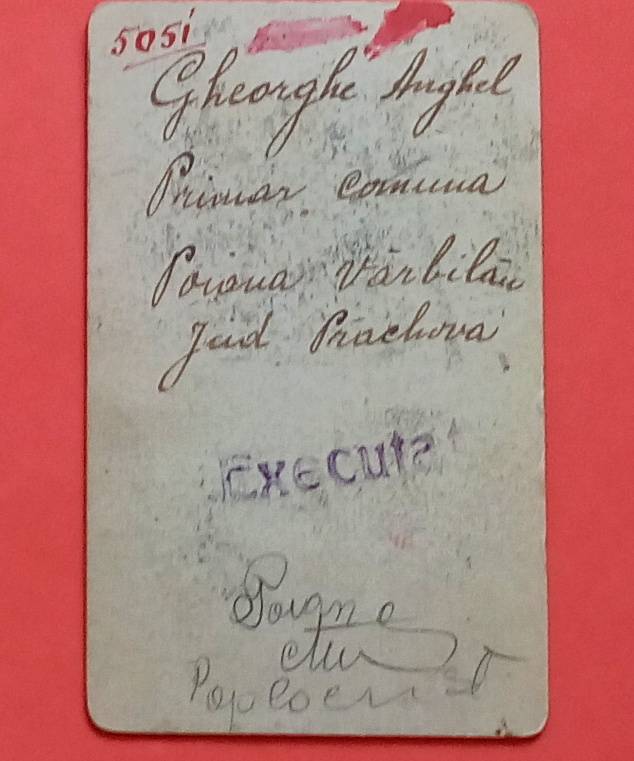 5051
Gheorghe Anghel
Primar comuna
Poiana Vărbilău
Jud Prachova
EXECUTAT